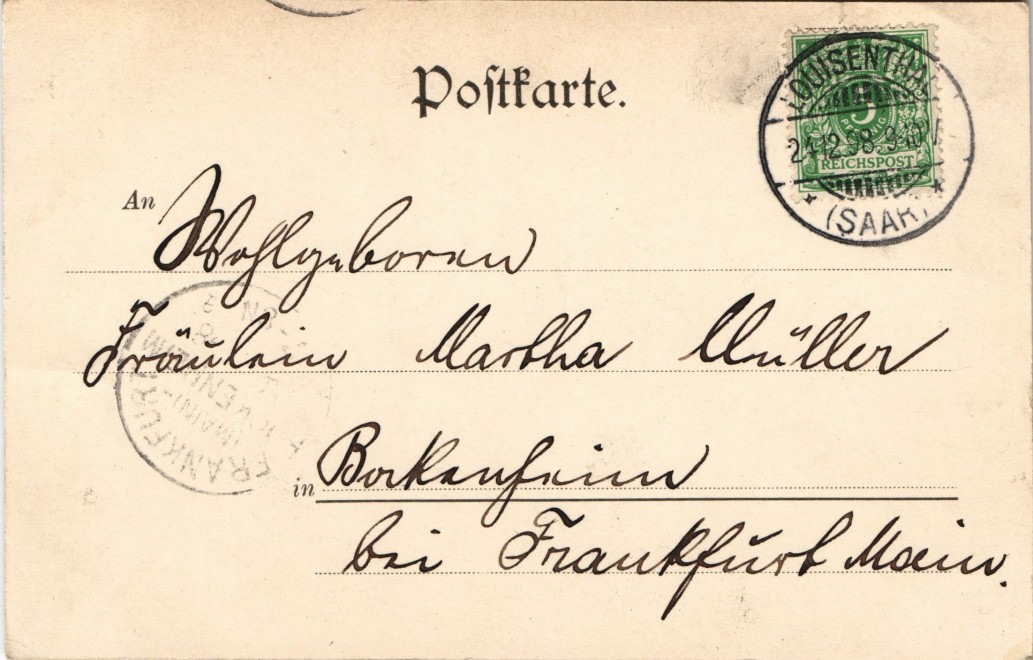 Postkarte.
LOUISENTHAL
5
PFENNIG
24.12.98.9-10V
REICHSPOST
* (SAAR) *
An Wohlgeboren
Fräulein Martha Müller
in Bockenheim
bei Frankfurt Main.
FRANKFURT
(MAIN)-